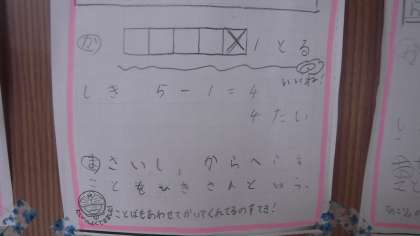 か 1とる
いいね!
しき 5-1=4
4たい
まさいし、からへらす
ことをひきさんという。
ことばもあわせてかいてくれてるのすてき!